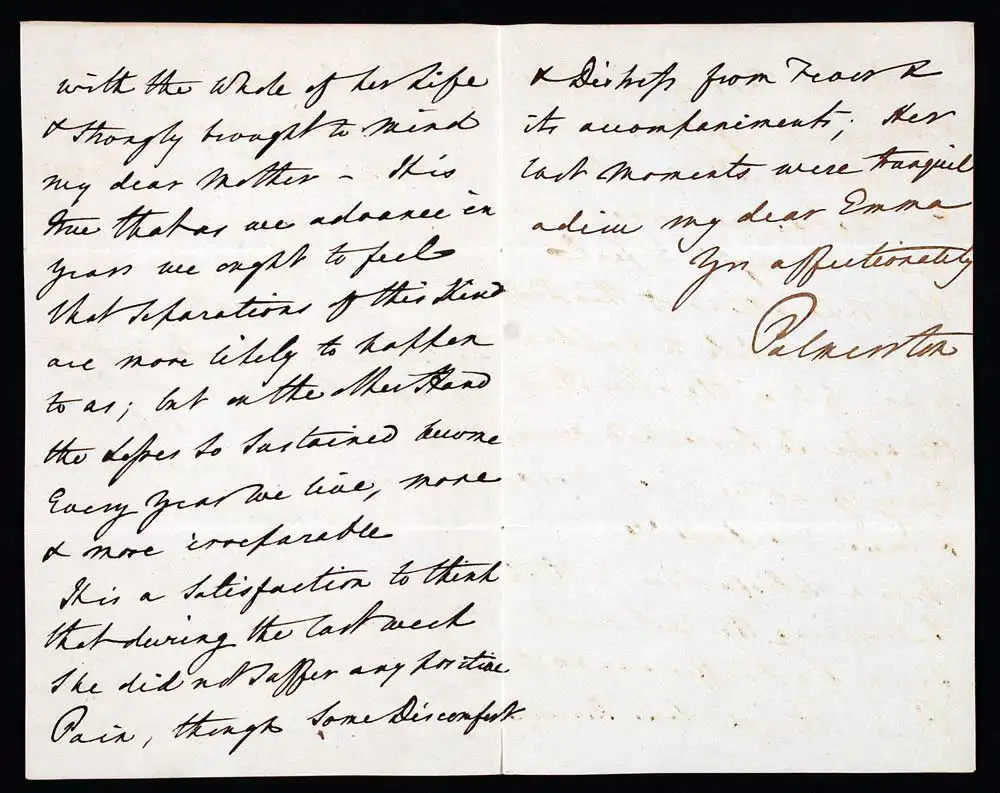 with the whole of her Life
& strongly brought to mind
my dear Mother – It is
true that as we advance in
years we ought to feel
that separations of this Kind
are more likely to happen
to us; but on the other Hand
the Losses so sustained become
Every year we live, more
& more irreparable
It is a Satisfaction to think
that during the last week
She did not Suffer any positive
Pain, though Some Discomfort
& Distress from Fever &
its accompaniments; Her
last moments were tranquil
adieu my dear Emma
Yrs affectionately
Palmerston